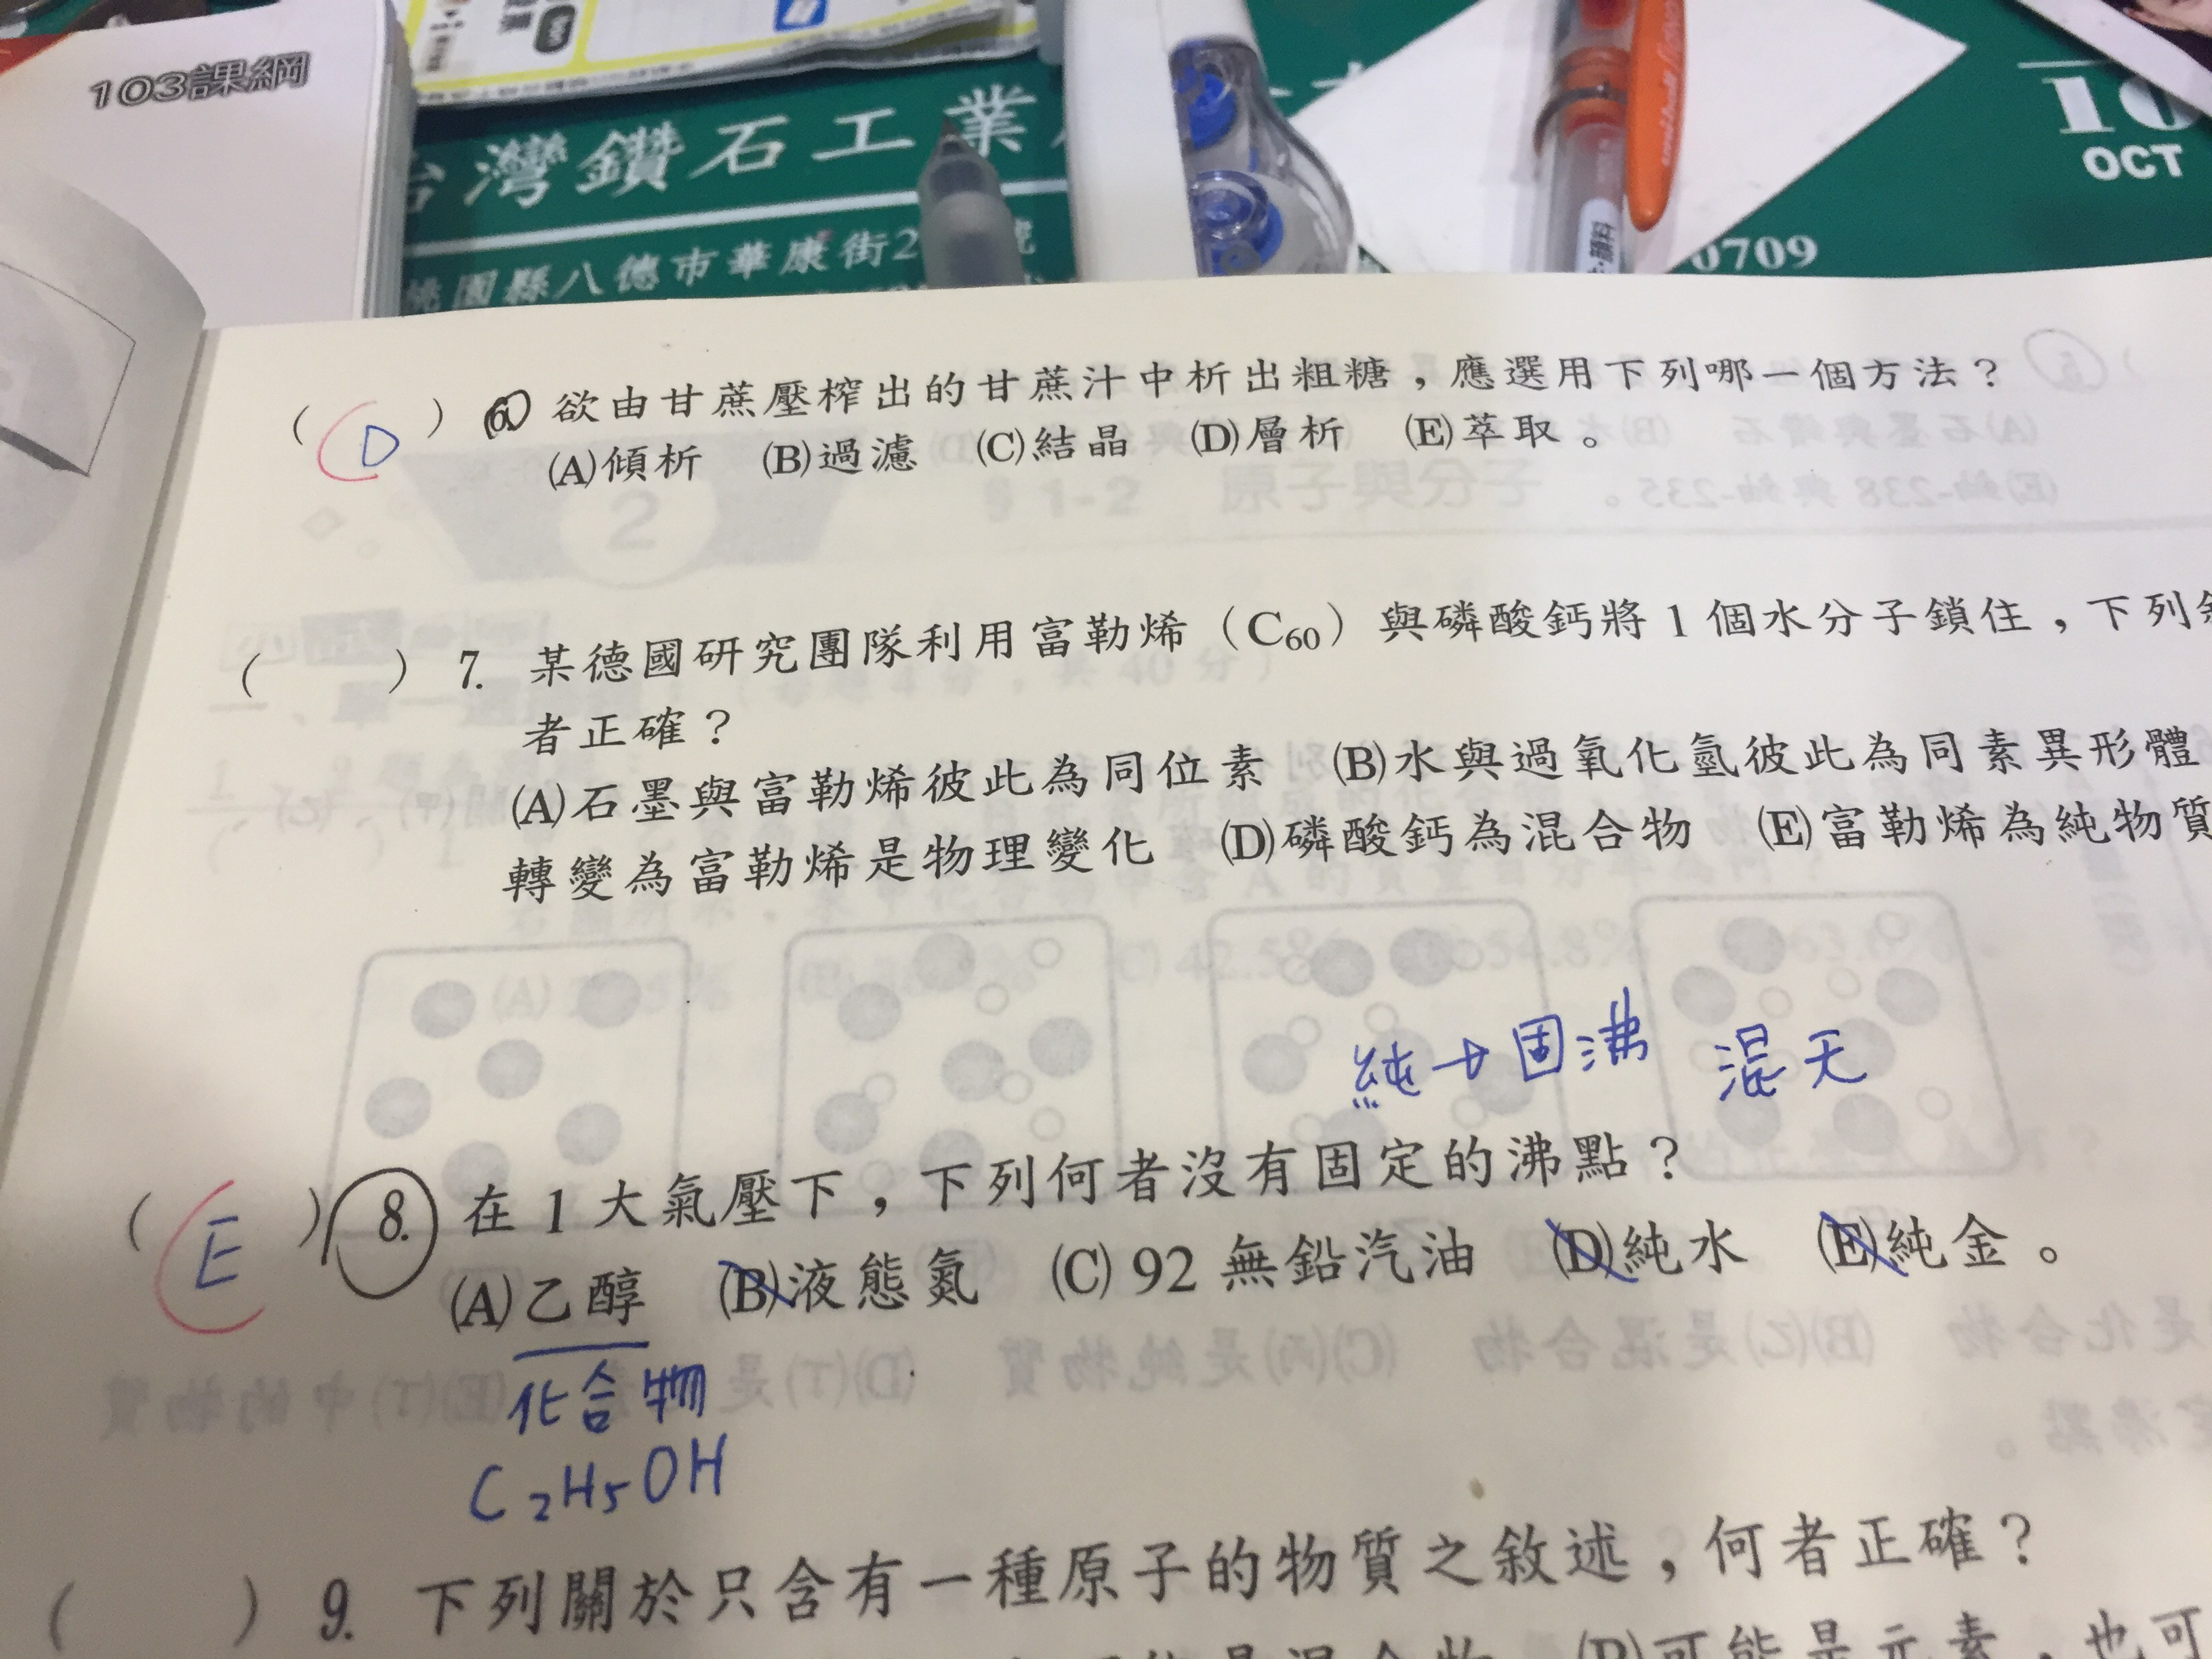 103課綱
台灣鑽石工業
桃園縣八德市華康街2 號
10
OCT
0709
( D ) 6. 欲由甘蔗壓榨出的甘蔗汁中析出粗糖，應選用下列哪一個方法？
(A)傾析 (B)過濾 (C)結晶 (D)層析 (E)萃取。
( ) 7. 某德國研究團隊利用富勒烯（C₆₀）與磷酸鈣將1個水分子鎖住，下列
者正確？
(A)石墨與富勒烯彼此為同位素 (B)水與過氧化氫彼此為同素異形體
轉變為富勒烯是物理變化 (D)磷酸鈣為混合物 (E)富勒烯為純物質
純→固沸 混无
( E ) 8. 在1大氣壓下，下列何者沒有固定的沸點？
(A)乙醇 (B)液態氮 (C) 92無鉛汽油 (D)純水 (E)純金。
化合物
C₂H₅OH
( ) 9. 下列關於只含有一種原子的物質之敘述，何者正確？
是混合物 (B)可能是元素，也可